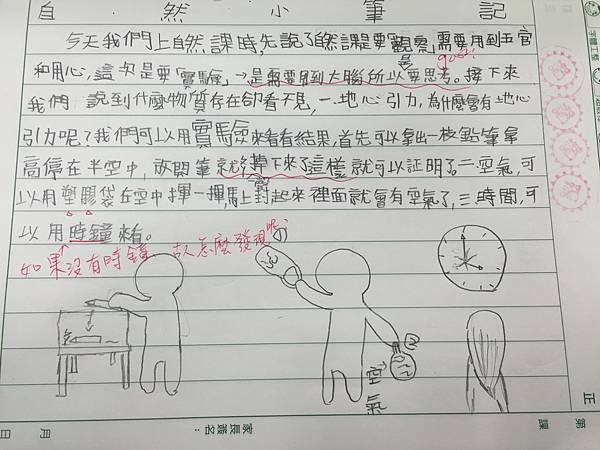 自然小筆記
今天我們上自然課時,先說了自然課是要觀察,需要用到五官
good!
和用心,這次是要「實驗」→是需要用到大腦所以要思考。接下來
我們說到什麼物質存在卻看不見,一地心引力,為什麼會有地心
引力呢?我們可以用實驗來看有結果,首先可以拿出一枝鉛筆拿
高停在半空中,放開筆就掉下來了這樣就可以証明了二空氣,可
以用塑膠袋在空中揮一揮,馬上封起來裡面就會有空氣了,三時間,可
以用時鐘來看。
如果沒有時鐘,古人怎麼發現呢?
空氣
正
第 課
家長簽名:
月 日